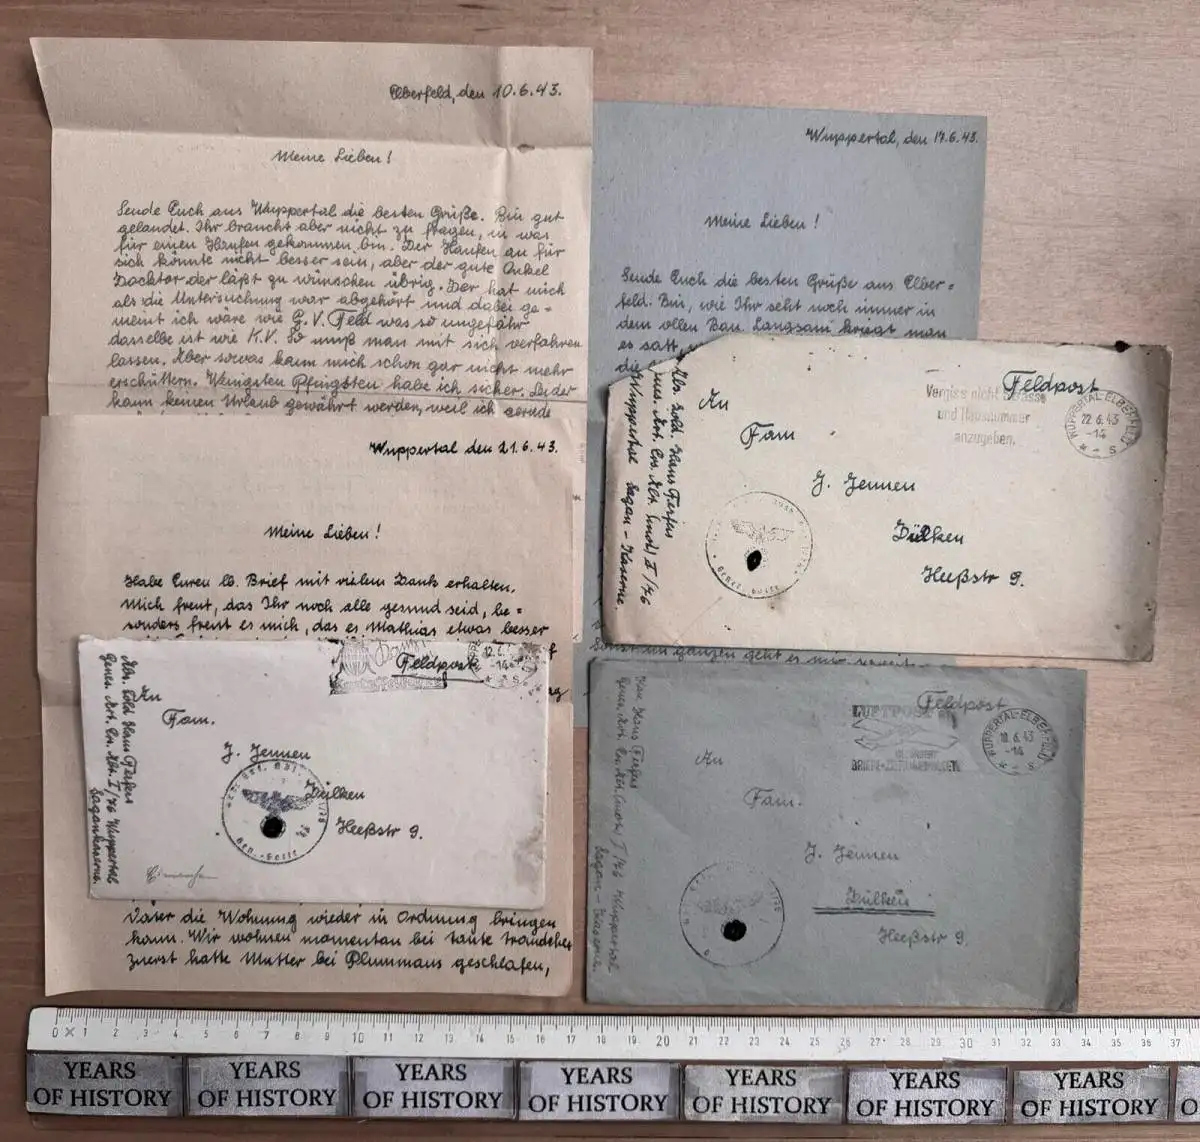 Elberfeld, den 10.6.43.
Meine Lieben!
Sende Euch aus Wuppertal die besten Grüße. Bin gut
gelandet. Ihr braucht aber nicht zu fragen, in was
für einen Haufen gekommen bin. Der Haufen an für
sich könnte nicht besser sein, aber der gute Onkel
Docktor der läßt zu wünschen übrig. Der hat mich
als die Untersuchung war abgehört und dabei ge=
meint ich wäre wie G.V. Feld was so ungefähr
dasselbe ist wie K.V. So muß man mit sich verfahren
lassen. Aber sowas kann mich schon gar nicht mehr
erschüttern. Wenigsten Pfingsten habe ich sicher. Leider
kann keinen Urlaub gewährt werden, weil ich gerade
Wuppertal, den 17.6.43.
Meine Lieben!
Sende Euch die besten Grüße aus Elber=
feld. Bin, wie Ihr seht noch immer in
dem ollen Bau. Langsam kriegt man
es satt,
die
Sonst im ganzen geht es mir soweit
Wuppertal den 21.6.43.
Meine Lieben!
Habe Euren lb. Brief mit vielem Dank erhalten.
Mich freut, das Ihr noch alle gesund seid, be=
sonders freut es mich, das es Mathias etwas besser
Vater die Wohnung wieder in Ordnung bringen
kann. Wir wohnen momentan bei Tante Traudchen
zuerst hatte Mutter bei Plummans geschlafen,
Feldpost
Vergiss nicht Strasse
und Hausnummer
anzugeben.
WUPPERTAL-ELBERFELD
22.6.43
-14
S
An
Fam
J. Jennen
Dülken
Heeßstr 9.
Abs. Sold. Hans
Genes. Art. Ers. Abt. (mot) I/76
Wuppertal Sagan-Kaserne.
Feldpost
12.6.
-14
S
An
Fam.
J. Jennen
Dülken
Heeßstr 9.
Abs. Sold Hans
Genes. Art. Ers. Abt. I/76 Wuppertal
Sagankaserne.
Feldpost
LUFTPOST
BEFÖRDERT
BRIEFE-ZEITUNGEN-PAKETE
WUPPERTAL-ELBERFELD
18.6.43
-14
S
An
Fam.
J. Jennen
Dülken
Heeßstr 9.
Kan. Hans
Genes. Art. Ers. Abt. (mot) I/76 Wuppertal
Sagan-Kaserne.
0 1 2 3 4 5 6 7 8 9 10 11 12 13 14 15 16 17 18 19 20 21 22 23 24 25 26 27 28 29 30 31 32 33 34 35 36 37
YEARS OF HISTORY
YEARS OF HISTORY
YEARS OF HISTORY
YEARS OF HISTORY
YEARS OF HISTORY
YEARS OF HISTORY
YEARS OF HISTORY